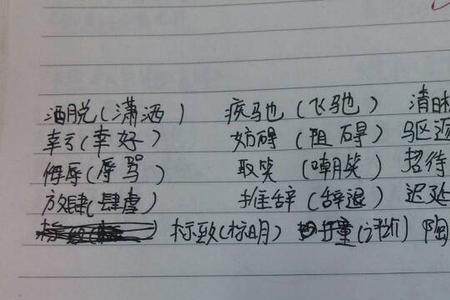 洒脱(潇洒) 疾驰(飞驰) 清
幸亏(幸好) 妨碍(阻碍) 驱
侮辱(辱骂) 取笑(嘲笑) 招待
放肆(肆虐) 推辞(辞退) 迟延
标致(标明) 打量(评价) 陶